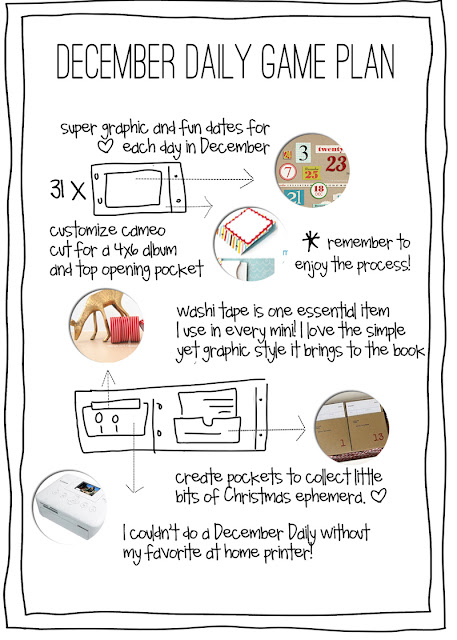 DECEMBER DAILY GAME PLAN
super graphic and fun dates for
♡ each day in December
31 X
twenty
3
23
7
25
18
21
customize cameo
cut for a 4x6 album
and top opening pocket
* remember to
enjoy the process!
washi tape is one essential item
I use in every mini! I love the simple
yet graphic style it brings to the book
0 0
1 1
1 13
create pockets to collect little
bits of Christmas ephemera. ♡
I couldn't do a December Daily without
my favorite at home printer!